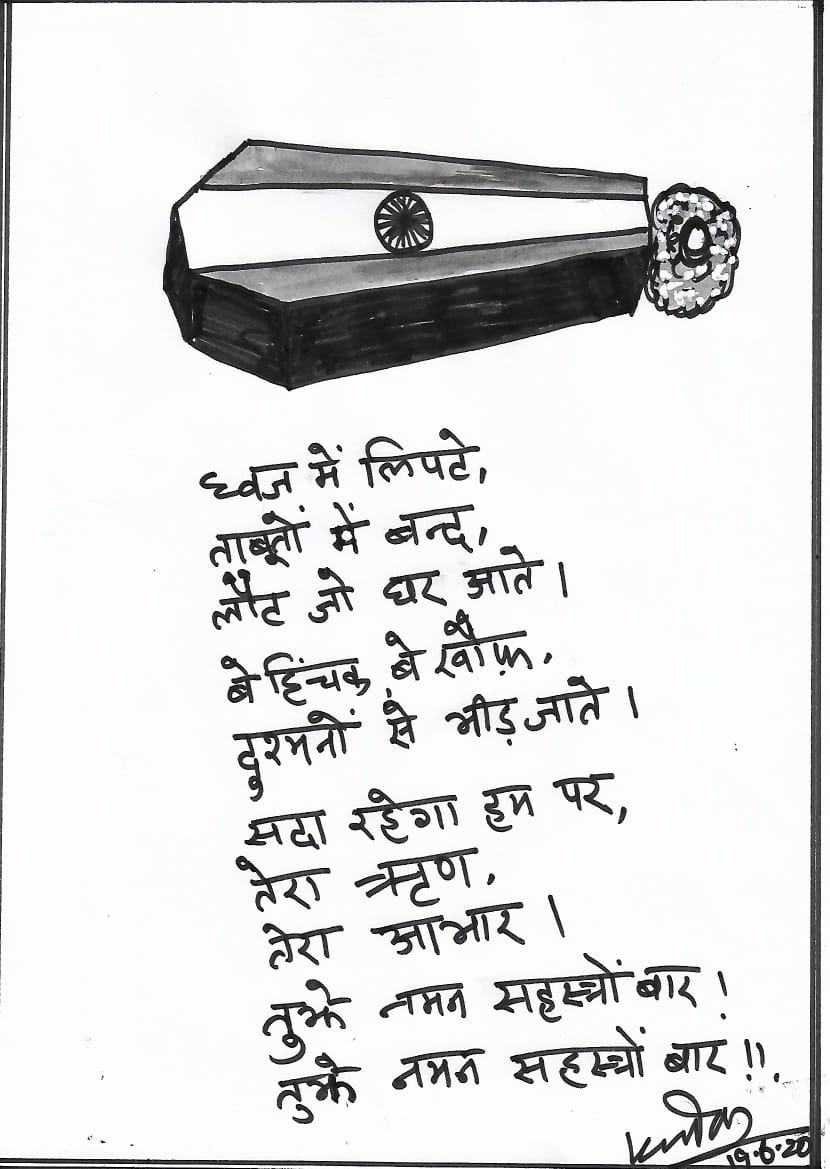 ध्वज में लिपटे,
ताबूतों में बन्द,
लौट जो घर आते।
बेहिंचक, बेखौफ़,
दुश्मनों से भीड़ जाते।
सदा रहेगा हम पर,
तेरा ऋण,
तेरा आभार।
तुझे नमन सहस्त्रों बार!
तुझे नमन सहस्त्रों बार!!.
19.6.20